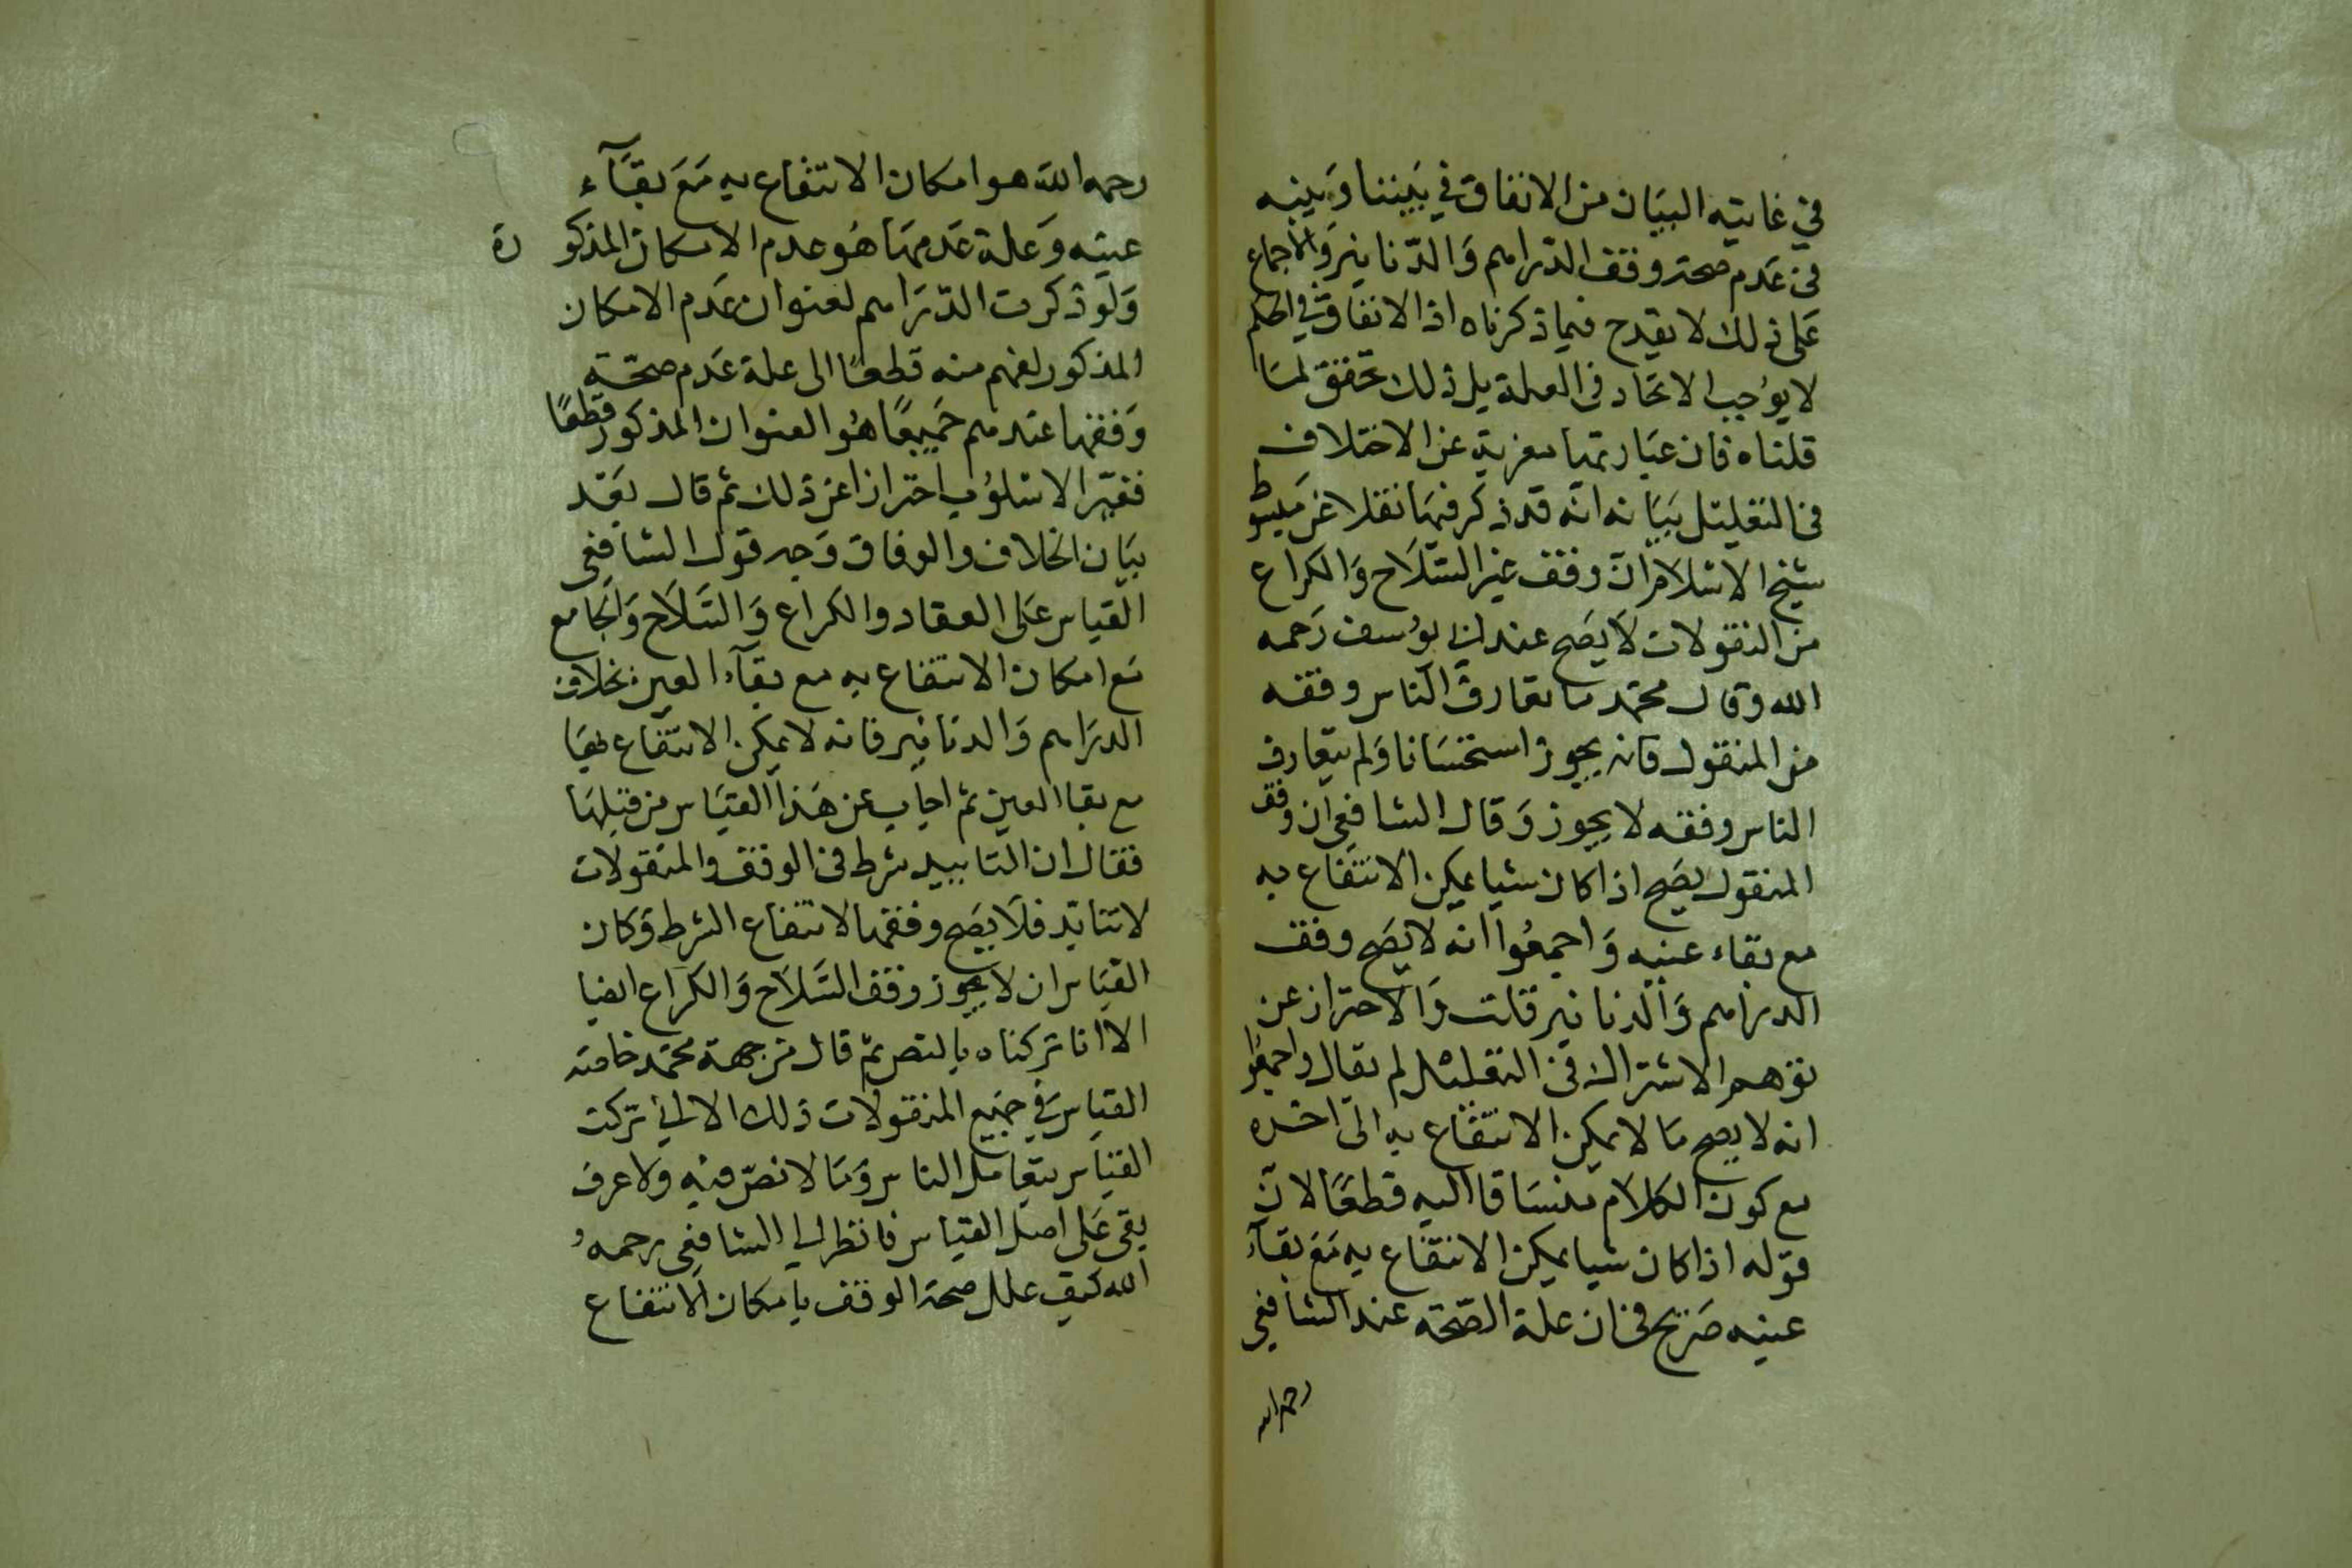 في غايته البيان من الاتفاق في بيننا وبينه
في عدم صحة وقف الدراهم والدنانير والاجماع
على ذلك لا يقدح فيما ذكرناه اذ الاتفاق في الحكم
لا يوجب الاتحاد في العلة بل ذلك تحقق لما
قلناه فان عبارتها معربة عن الاختلاف
في التعليل بيانه انه قد ذكر فيها نقلا عن مبسوط
شيخ الاسلام ان وقف غير السلاح والكراع
من النقولات لا يصح عند ابي يوسف رحمه
الله وقال محمد ما تعارف الناس وقفه
من المنقول فانه يجوز استحسانا ولم يتعارف
الناس وقفه لا يجوز وقال الشافعي ان وقف
المنقول يصح اذا كان شيا يمكن الانتفاع به
مع بقاء عينه واجمعوا انه لا يصح وقف
الدراهم والدنانير قلت والاحتراز عن
توهم الاشتراك في التعليل لم يقال واجمعوا
انه لا يصح ما لا يمكن الانتفاع به الى اخره
مع كون الكلام منساقا اليه قطعا لان
قوله اذا كان شيا يمكن الانتفاع به مع بقاء
عينه صريح في ان علة الصحة عند الشافعي
رحمه الله
رحمه الله هو امكان الانتفاع به مع بقاء
عينه وعلة عدمها هو عدم الامكان المذكورة
ولو ذكرت الدراهم لعنوان عدم الامكان
المذكور لفهم منه قطعا الى علة عدم صحة
وقفها عندهم جميعا هو العنوان المذكور قطعا
فغير الاسلوب احترازا عن ذلك ثم قال بعد
بيان الخلاف والوفاق وجه قول الشافعي
القياس على العقاد والكراع والسلاح والجامع
مع امكان الانتفاع به مع بقاء العين بخلاف
الدراهم والدنانير فانه لا يمكن الانتفاع بها
مع بقا العين ثم اجاب عن هذا القياس من قبلها
فقال ان التابيد شرط في الوقف والمنقولات
لا تتابد فلا يصح وقفها لانتفاع الشرط وكان
القياس ان لا يجوز وقف السلاح والكراع ايضا
الا انا تركناه بالنص ثم قال من جهة محمد خاصته
القياس في جميع المنقولات ذلك الا اني تركت
القياس بتعامل الناس وما لا نص فيه ولا عرف
بقي على اصل القياس فانظر الى الشافعي رحمه
الله كيف علل صحة الوقف بامكان الانتفاع